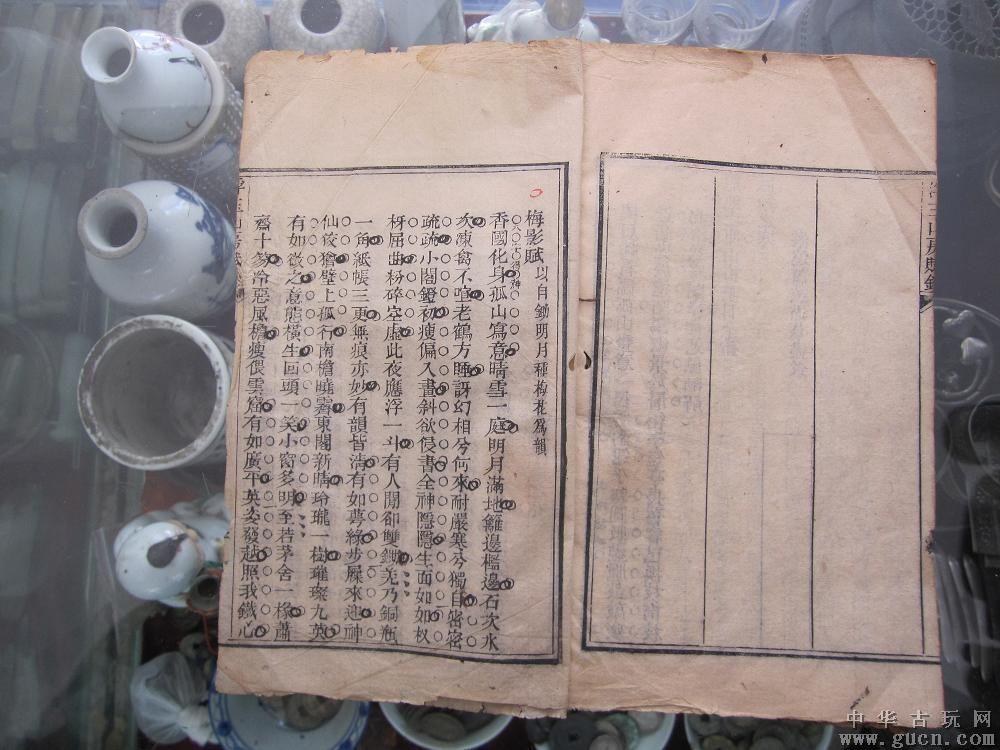 梅影賦以自鋤明月種梅花爲韻
香國化身孤山寫意晴雪一庭明月滿地籬邊檻邊石次水
次凍禽不喧老鶴方睡訝幻相兮何來耐嚴寒兮獨自密密
疏疏小閣鐙初瘦偏入畫斜欲侵書全神隱隱生面如如杈
枒屈曲粉碎空虛此夜應浮一斗有人閒卻雙鋤羌乃銅瓶
一角紙帳三更無痕亦妙有韻皆清有如夢綠步屧來迎神
仙狡獪壁上孤行南檐曉霽東閣新晴玲瓏一樹璀璨九英
有如徵之意態橫生回頭一笑小窗多明至若茅舍一椽蕭
齋十笏冷惡風檐瘦偎雲窟有如廣平英姿發越照我鐵心
山房賦
山房賦鈔
中华古玩网
www.gucn.com